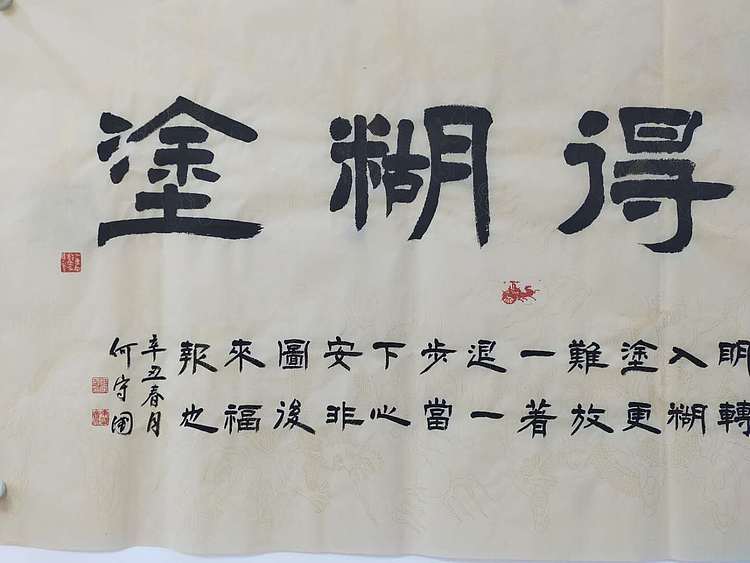 得糊塗
明轉
入糊
塗更
難放
一著
退一
步當
下心
安非
圖後
來福
報也
辛丑春月
何守国